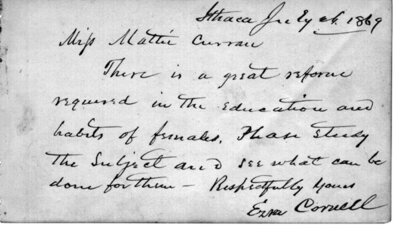 Ithaca July 1869
Miss Mattie Curran
There is a great reform
required in the education and
habits of females. Please study
the subject and see what can be
done for them – Respectfully yours
Ezra Cornell